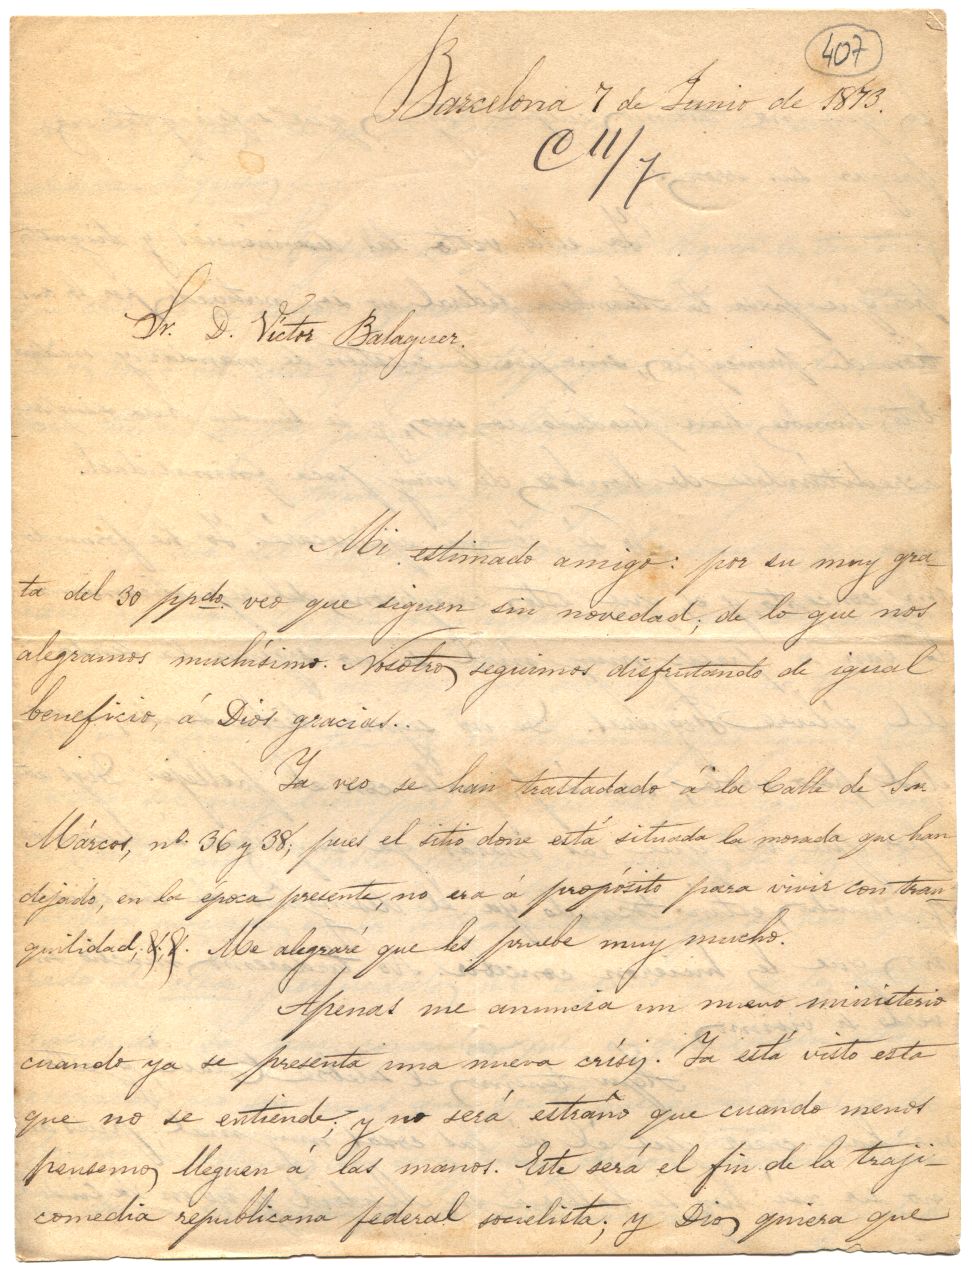 407
Barcelona 7 de Junio de 1873.
C 11/7
Sr. D. Víctor Balaguer.
Mi estimado amigo: por su muy gra-
ta del 30 ppdo. veo que siguen sin novedad; de lo que nos
alegramos muchísimo. Nosotros seguimos disfrutando de igual
beneficio, á Dios gracias..
Ya veo se han trastadado á la Calle de Sn.
Márcos, nº. 36 y 38; pues el sitio done está situada la morada que han
dejado, en la época presente, no era á propósito para vivir con tran-
quilidad, &; &. Me alegraré que les pruebe muy mucho.
Apenas me anuncia un nuevo ministerio
cuando ya se presenta una nueva crísis. Ya está visto esta
que no se entiende; y no será estraño que cuando menos
pensemos lleguen á las manos. Este será el fin de la traji-
comedia republicana federal socielista; y Dios quiera que